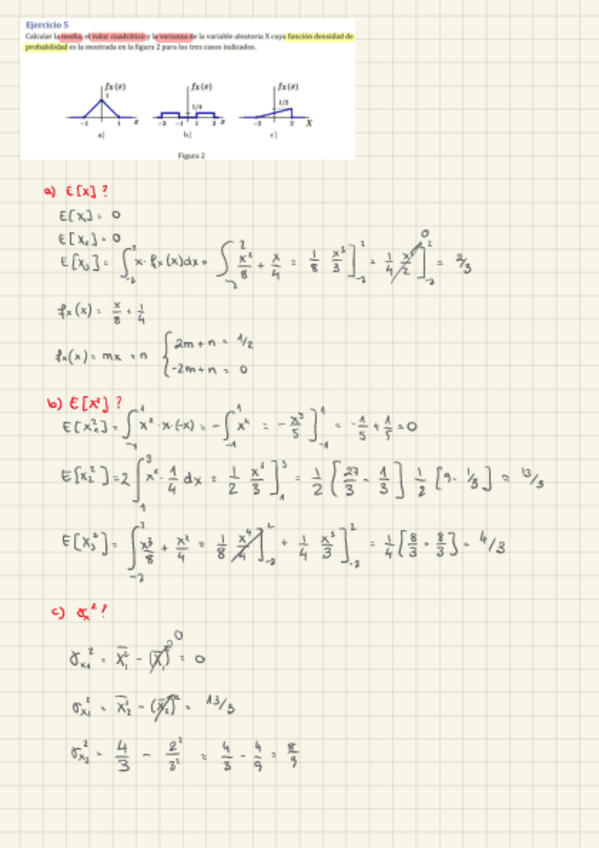 Ejercicio 5
Calcular la media, el valor cuadrático y la varianza de la variable aleatoria X cuya función densidad de
probabilidad es la mostrada en la figura 2 para los tres casos indicados.
fx(x) fx(x) fx(x)
1 1/4 1/2
-1 1 x -3 -1 1 3 x -2 2 X
a) b) c)
Figura 2
a) E[x]?
E[x₁] = 0
E[x₂] = 0
E[x₃] = ∫₋₂² x · fx(x)dx = ∫₋₂² x²/8 + x/4 = 1/8 x³/3 ]₋₂² + 1/4 x²/2 ]₋₂² 0 = 2/3
fx(x) = x/8 + 1/4
fx(x) = mx + n { 2m + n = 1/2
-2m + n = 0
b) E[x²]?
E[x₁²] = ∫₋₁¹ x² · x · (-x) = -∫₋₁¹ x⁴ = - x⁵/5 ]₋₁¹ = -1/5 + 1/5 = 0
E[x₂²] = 2 ∫₁³ x² · 1/4 dx = 1/2 x³/3 ]₁³ = 1/2 [27/3 - 1/3] 1/2 [9 - 1/3] = 13/3
E[x₃²] = ∫₋₂² x³/8 + x²/4 = 1/8 x⁴/4 ]₋₂² + 1/4 x³/3 ]₋₂² = 1/4 [8/3 + 8/3] = 4/3
c) σx²?
σx₁² = x₁² - (x₁)² 0 = 0
σx₂² = x₂² - (x₂)² = 13/3
σx₃² = 4/3 - 2²/3² = 4/3 - 4/9 = 8/9